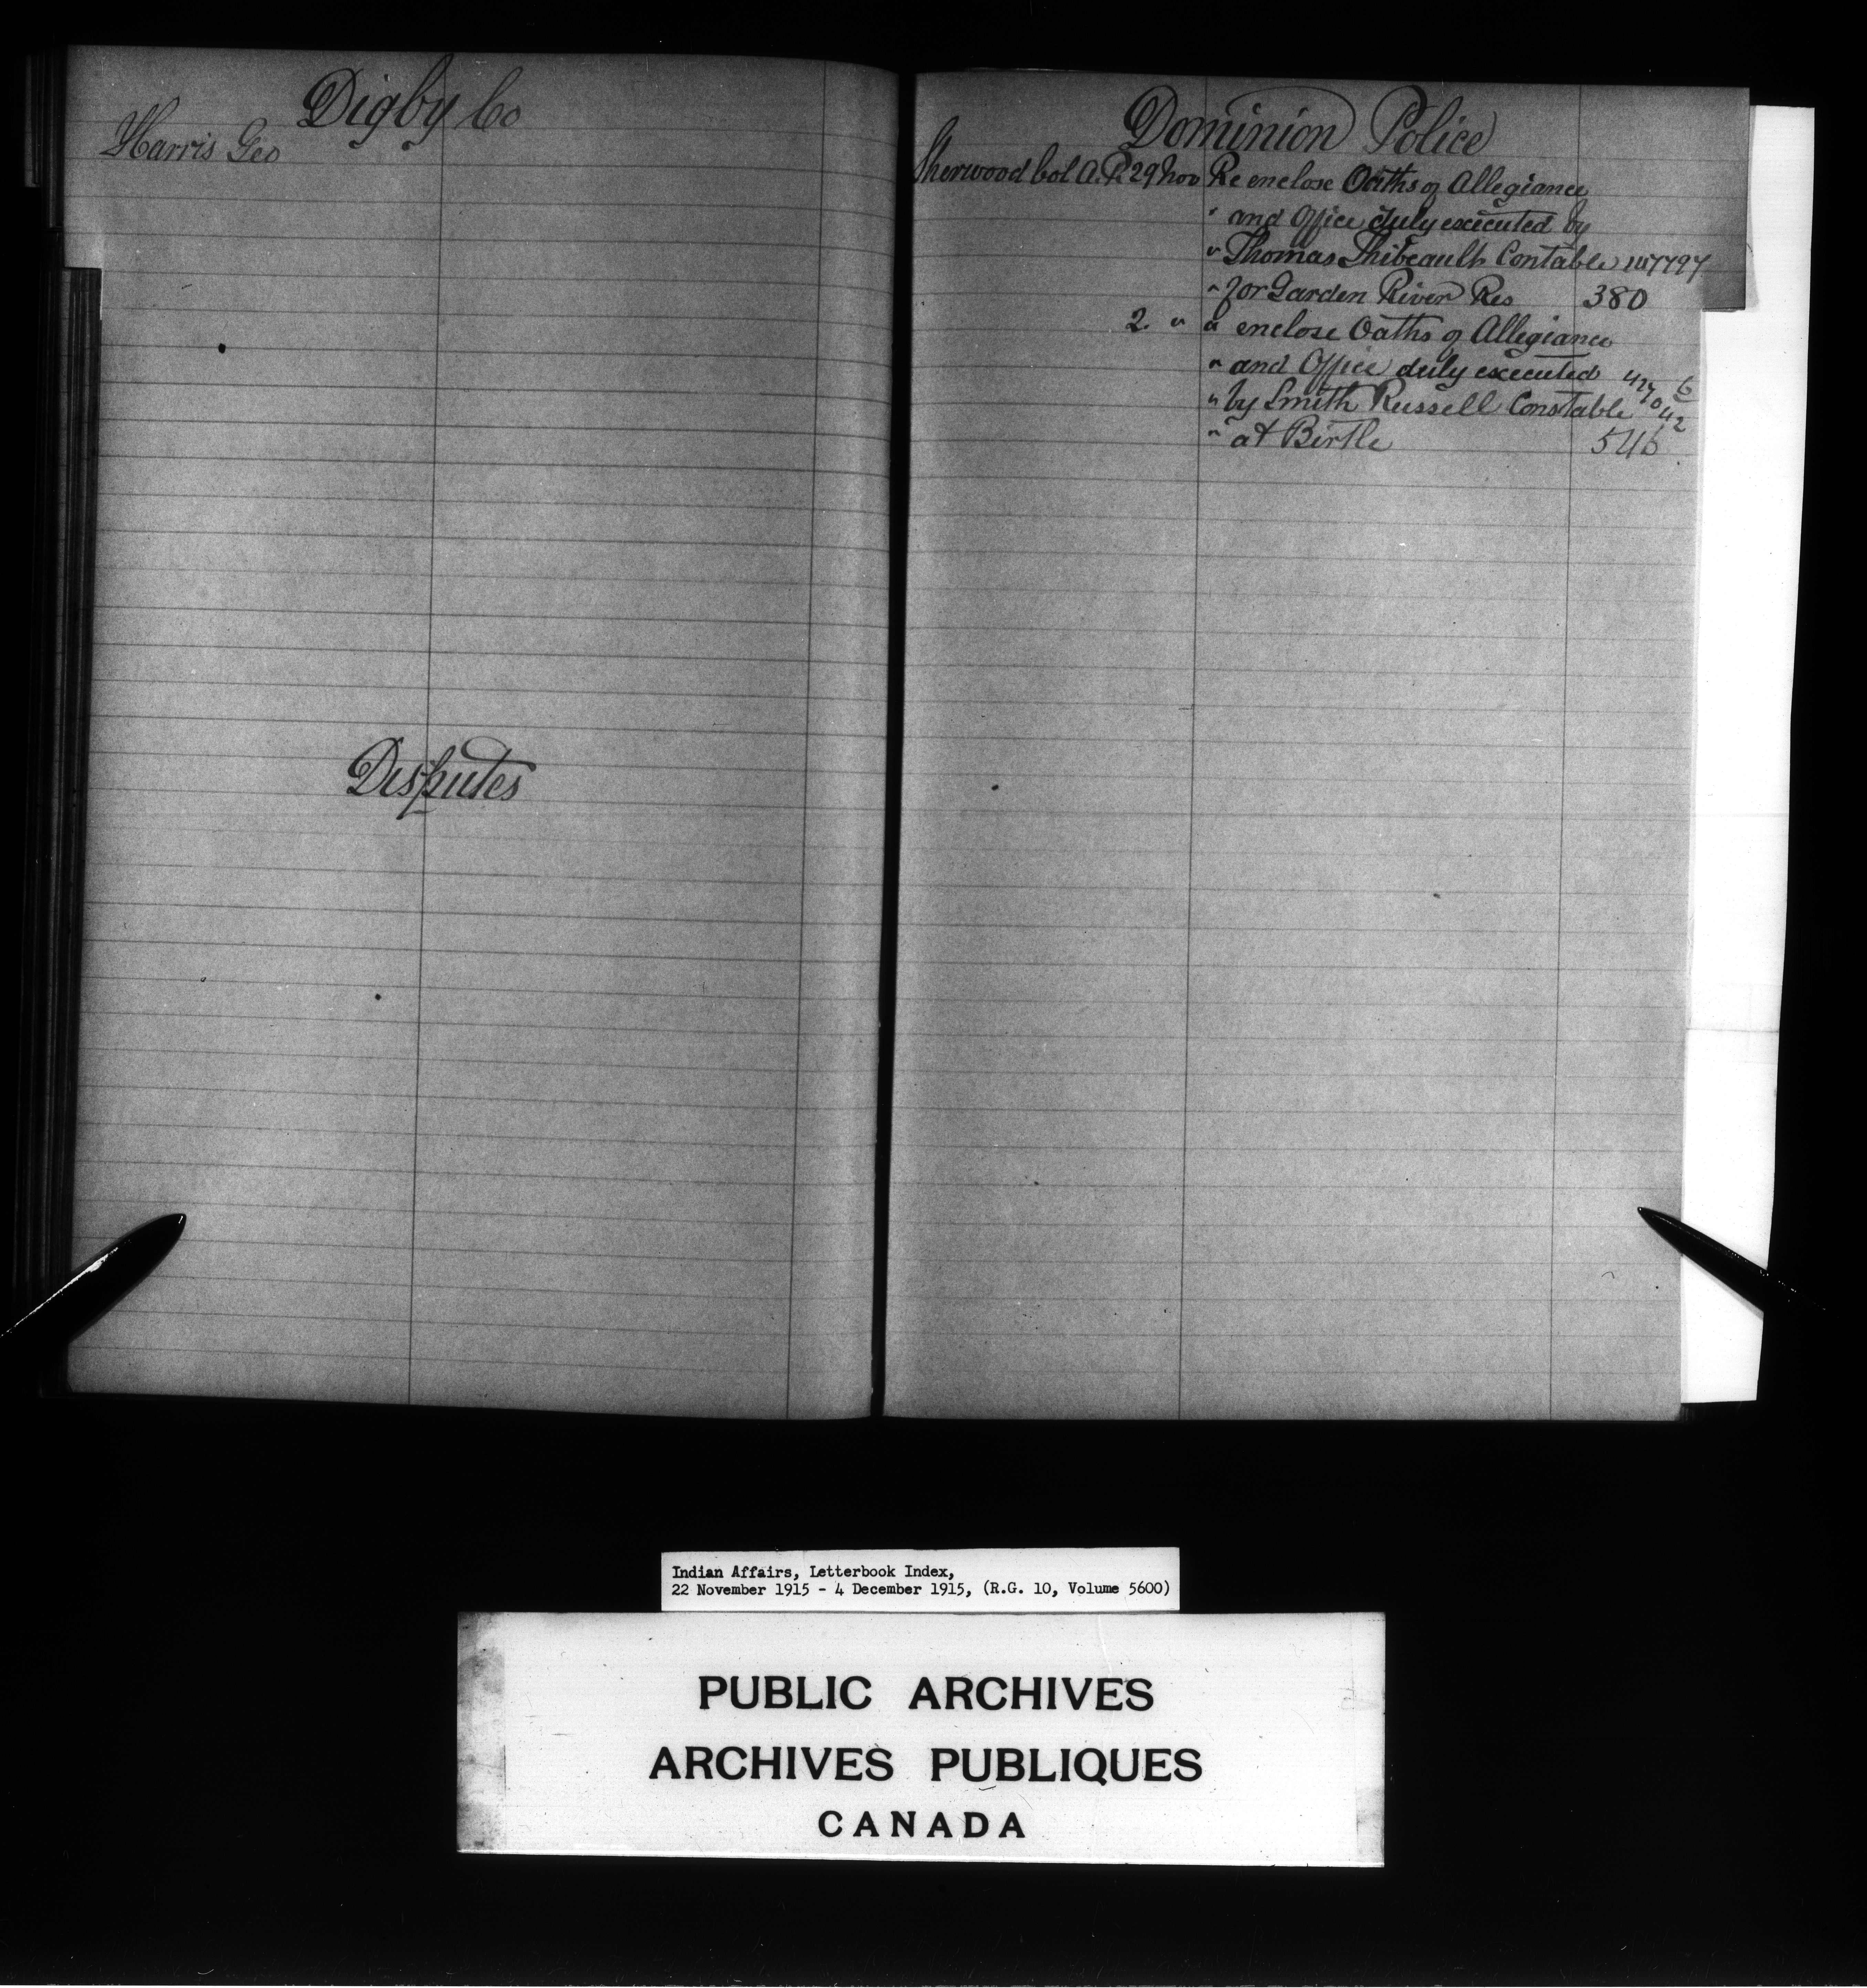 Digby Co
Harris Geo
Disputes
Dominion Police
Sherwood Col A.P. 29 Nov Re enclose Oaths of Allegiance
" and Office duly executed by
" Thomas Thibeault Contable 
" for Garden River Res 380
2. " " enclose Oaths of Allegiance
" and Office duly executed
" by Smith Russell Constable
" at Birtle 546
Indian Affairs, Letterbook Index,
22 November 1915 - 4 December 1915, (R.G. 10, Volume 5600)
PUBLIC ARCHIVES
ARCHIVES PUBLIQUES
CANADA